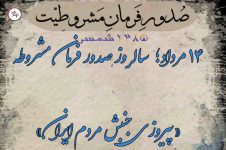 صدور فرمان مشروطیت
۱۲۸۵ شمسی
۱۴ مرداد؛ سالروز صدور فرمان مشروطه
«پیروزی جنبش مردم ایران»